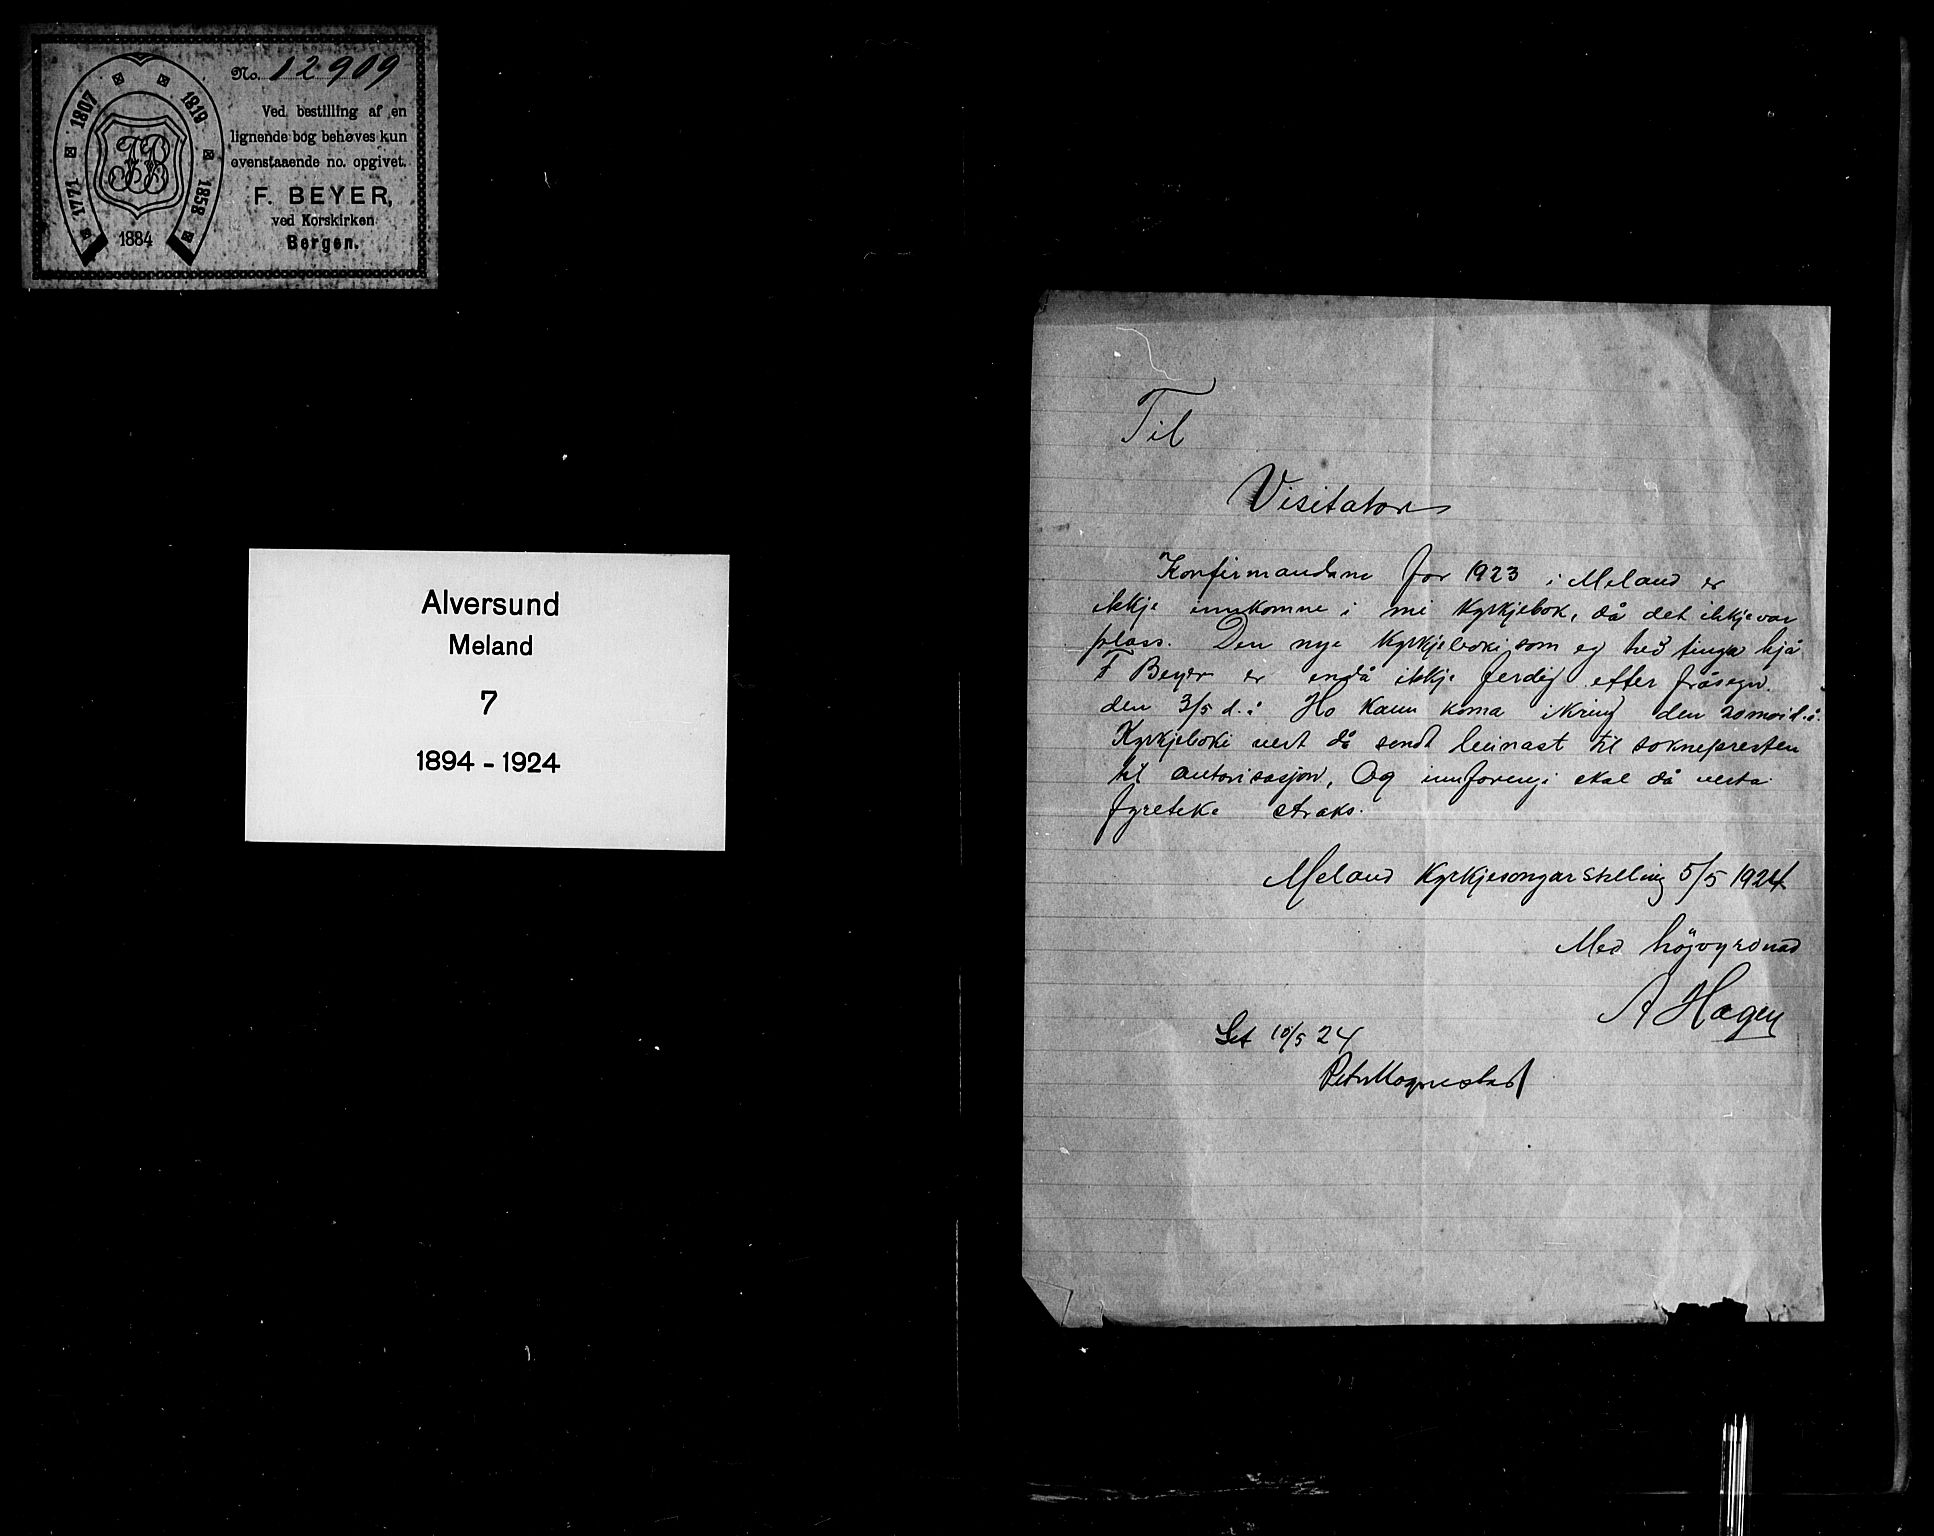 No. 12909
1771 1807 1819 1858
FB
1884
Ved bestilling af en
lignende bog behøves kun
ovenstaaende no. opgivet.
F. BEYER,
ved Korskirken
Bergen.
Alversund
Meland
7
1894 - 1924
Til
Visitator
Konfirmandane for 1923 i Meland er
ikkje innkomne i mi Kyrkjebok, då det ikkje var
plass. Den nye Kyrkjeboki som eg hev tinga hjå
F Beyer er endå ikkje ferdig efter fråsegn
den 3/5 d.å. Ho kann koma ikring den 20 mai d.å.
Kyrkjeboki vert då sendt beinast til soknepresten
til autorisasjon, Og innföringi skal då verta
fyreteke straks.
Meland Kyrkjesongarstelling 5/5 1924
Med högvyrdnad
A Hagen
Set 10/5 24
Petr Mognestad